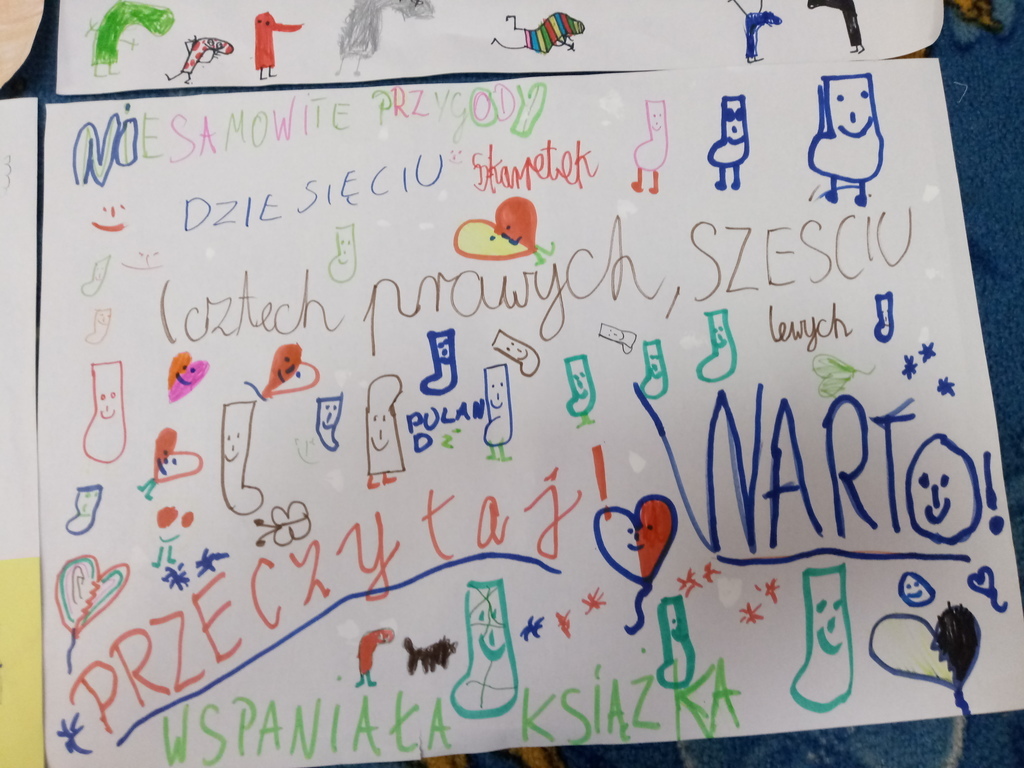 NiESAMOWITE PRZYGODY
DZIESIĘCIU skarpetek
(cztech prawych, SZEŚCIU
lewych
PULAN
D
WARTO!
PRZECZytaj!
WSPANIAŁA KSIĄŻKA